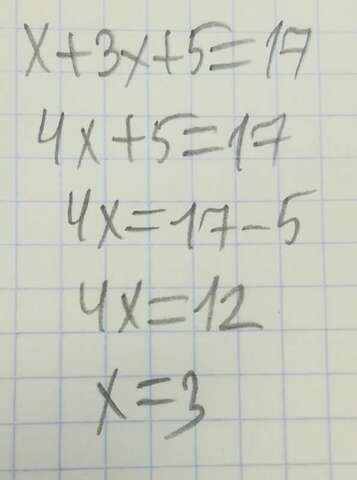 x+3x+5=17
4x+5=17
4x=17-5
4x=12
x=3